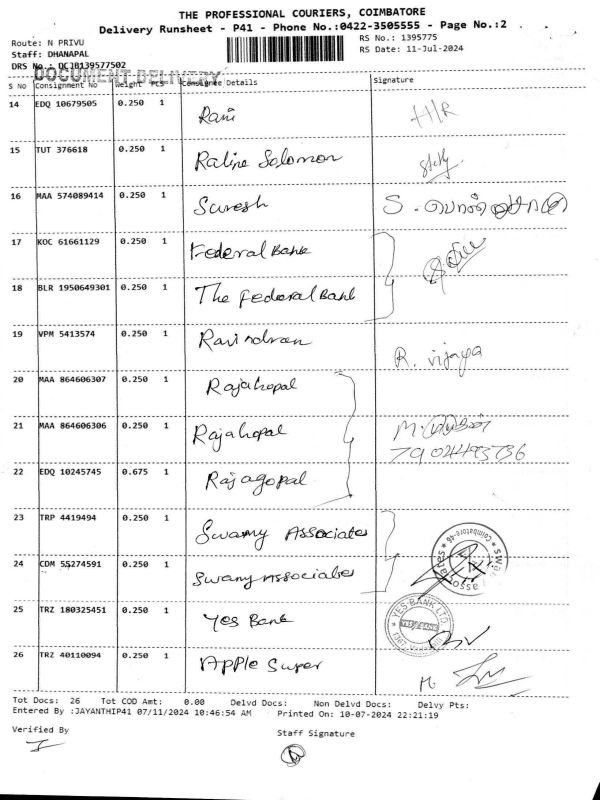 THE PROFESSIONAL COURIERS, COIMBATORE
Delivery Runsheet - P41 - Phone No.:0422-3505555 - Page No.:2
Route: N PRIVU
RS No.: 1395775
Staff: DHANAPAL
RS Date: 11-Jul-2024
DRS No.: DC1B139577502
DOCUMENT DELIVERY
S No Consignment No Weight PCS Consignee Details Signature
14 EDQ 10679505 0.250 1 Rani H/R
15 TUT 376618 0.250 1 Solomon
16 MAA 574089414 0.250 1 Suresh S.
17 KOC 61661129 0.250 1 Federal Bank
18 BLR 1950649301 0.250 1 The Federal Bank
19 VPM 5413574 0.250 1 Ravindran R. vijaya
20 MAA 864606307 0.250 1 Rajahopal
21 MAA 864606306 0.250 1 Rajahopal M.
22 EDQ 10245745 0.675 1 Rajagopal
23 TRP 4419494 0.250 1 Swamy Associates
24 CDM 55274591 0.250 1 Swamy Associates
25 TRZ 180325451 0.250 1 Yes Bank YES BANK LTD
26 TRZ 40110094 0.250 1 Apple Super M
Tot Docs: 26 Tot COD Amt: 0.00 Delvd Docs: Non Delvd Docs: Delvy Pts:
Entered By :JAYANTHIP41 07/11/2024 10:46:54 AM Printed On: 10-07-2024 22:21:19
Verified By
Staff Signature